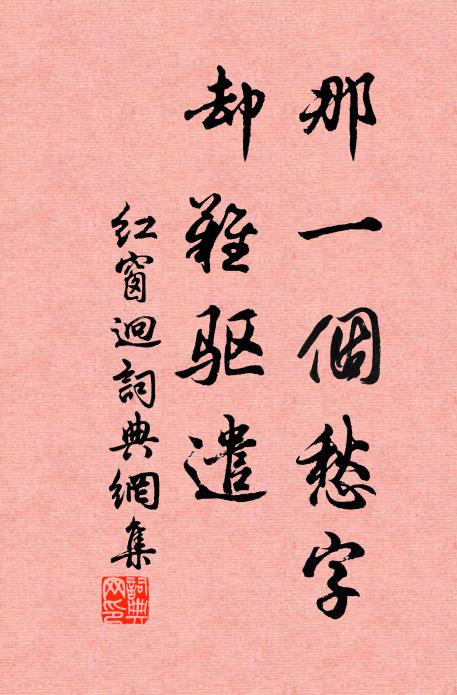 那一個愁字
却難驱遣
红窗迥詞典網集
詞典网印